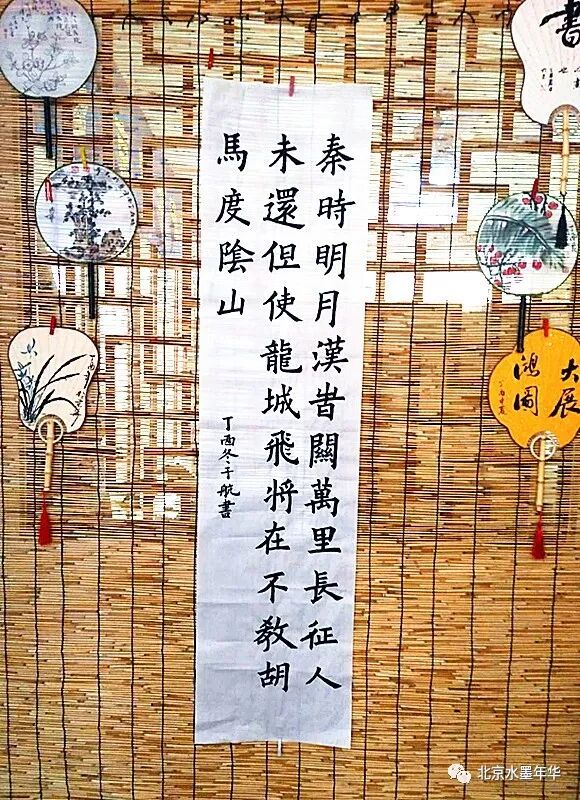 秦時明月漢旹關萬里長征人
未還但使龍城飛将在不教胡
馬度陰山
丁酉冬于航書
書
大展
鴻圖
北京水墨年华